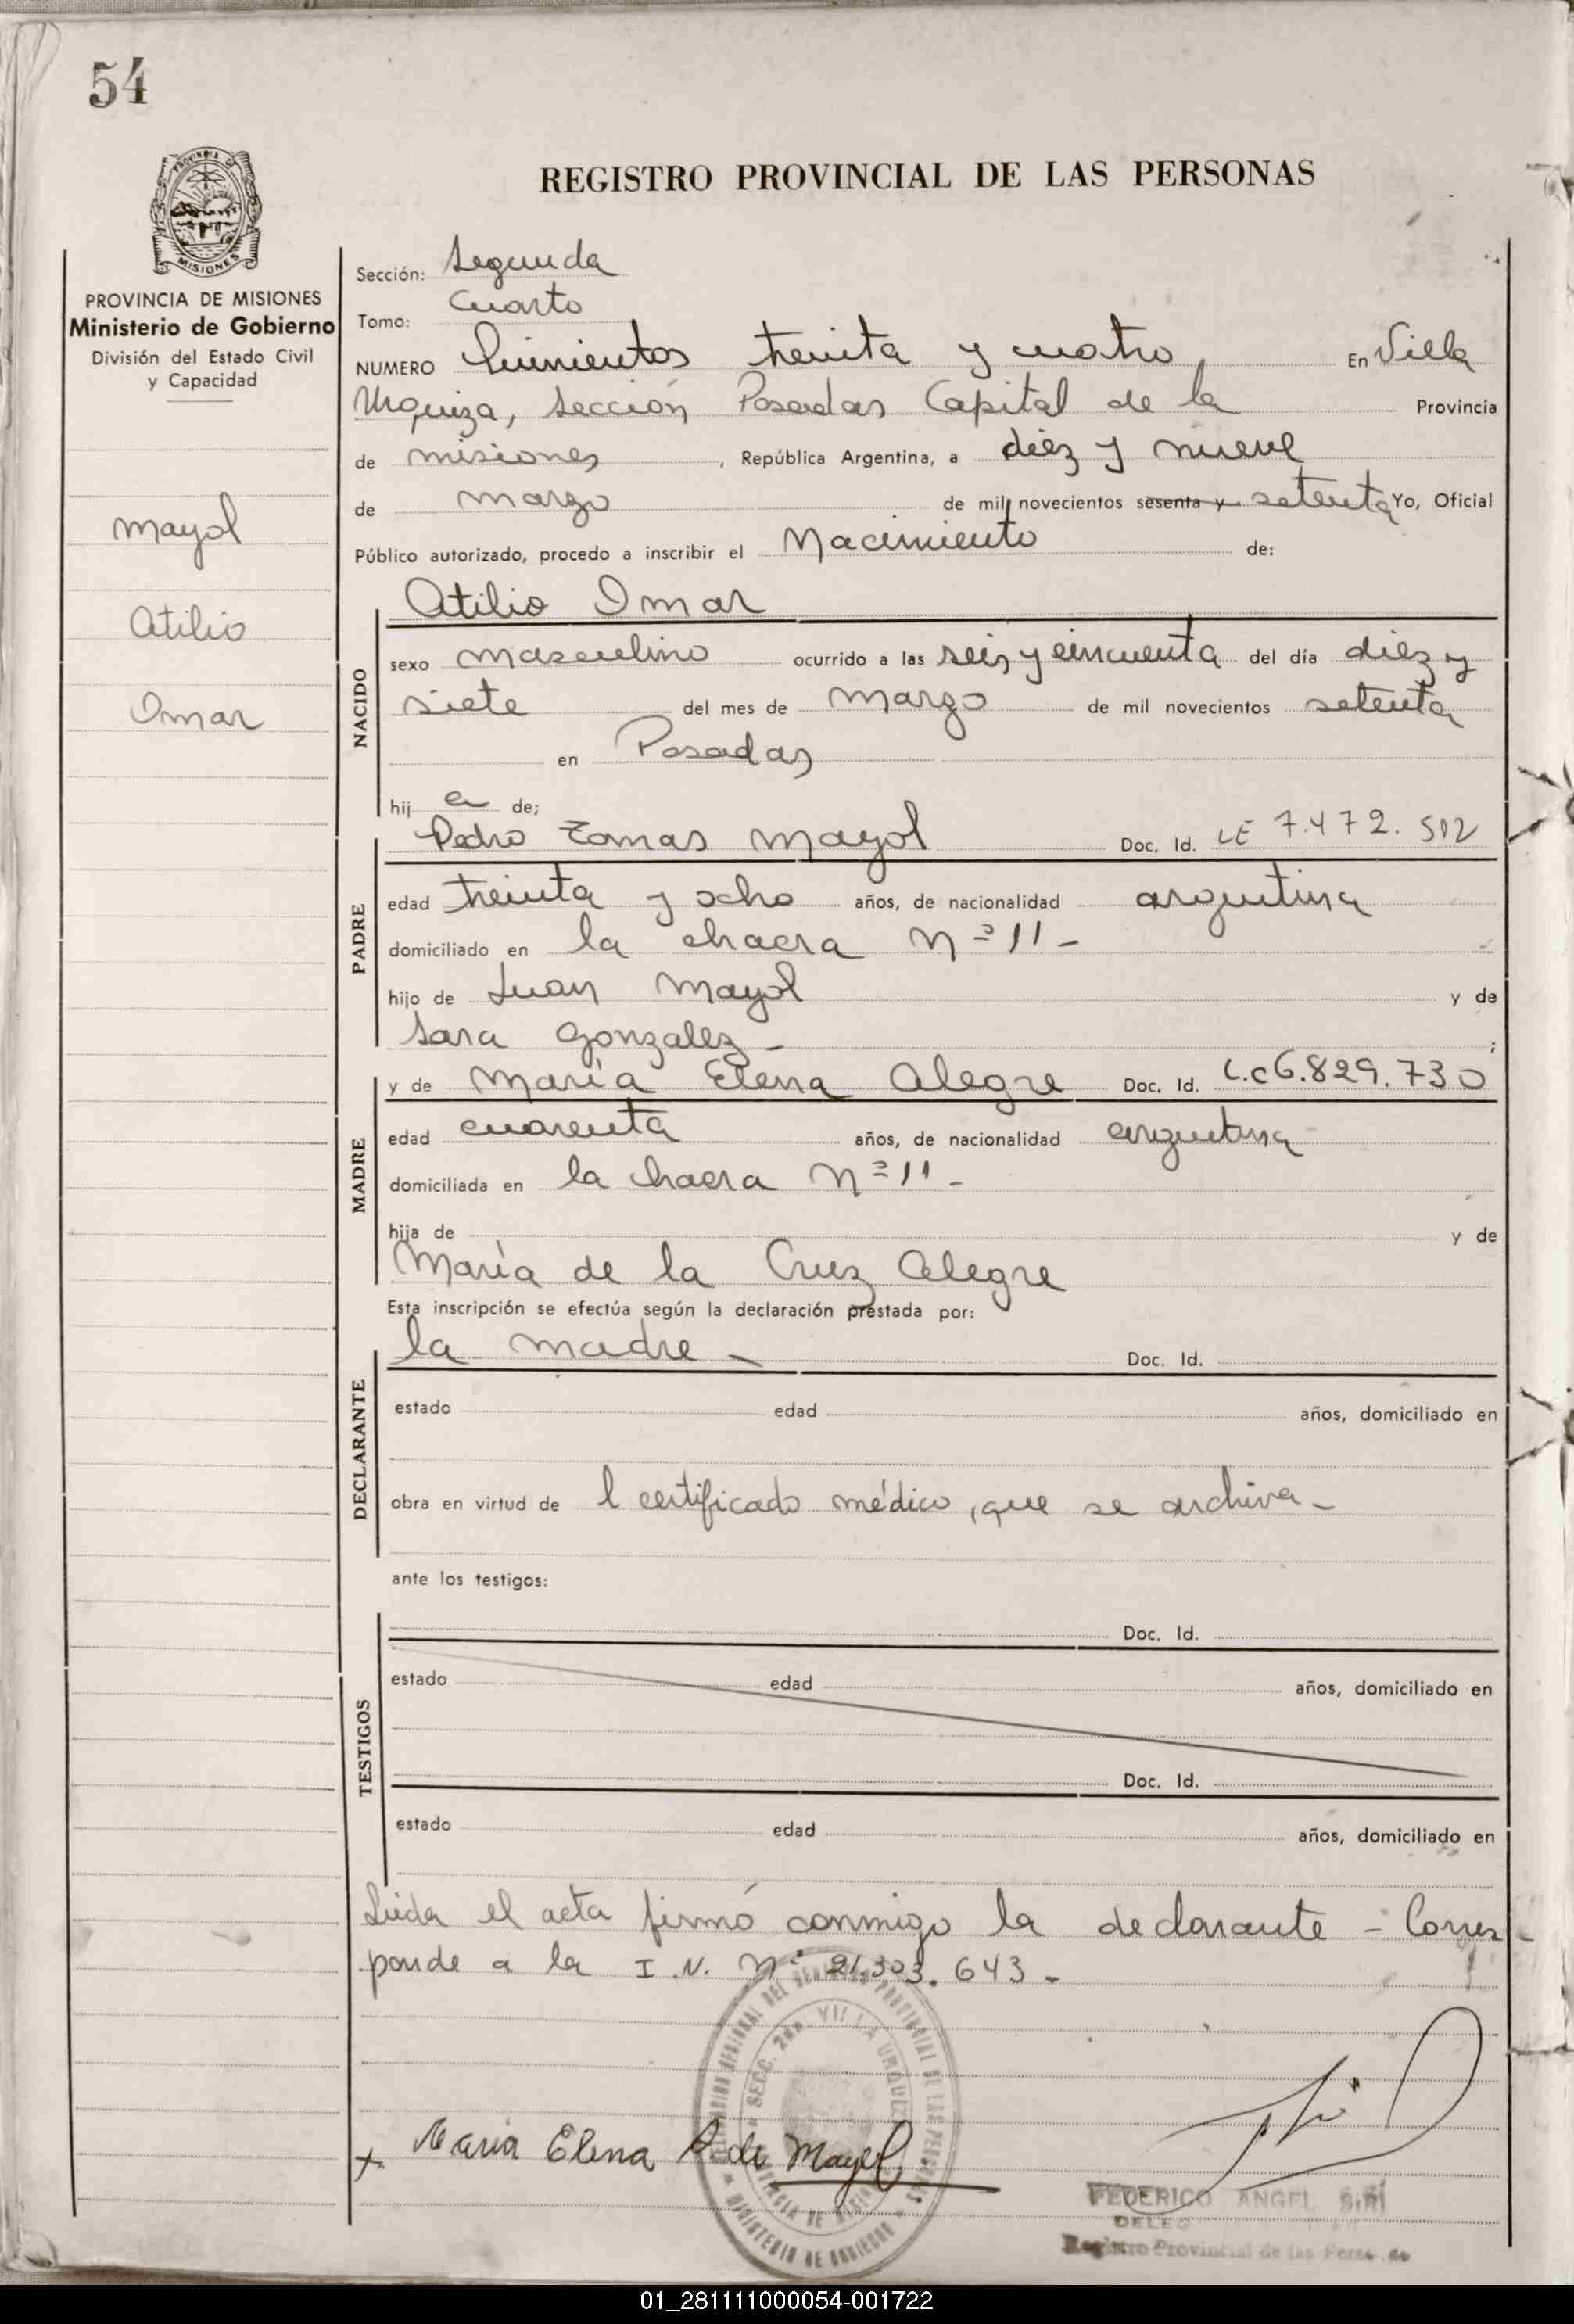 54
REGISTRO PROVINCIAL DE LAS PERSONAS
PROVINCIA DE
MISIONES
PROVINCIA DE MISIONES
Ministerio de Gobierno
División del Estado Civil
y Capacidad
Mayol
Atilio
Omar
Sección: Segunda
Tomo: Cuarto
NUMERO Quinientos treinta y cuatro, En Villa
Urquiza, Sección Posadas Capital de la Provincia
de misiones, República Argentina, a diez y nueve
de marzo de mil novecientos sesenta y setenta Yo, Oficial
Público autorizado, procedo a inscribir el Nacimiento de:
Atilio Omar
NACIDO
sexo masculino ocurrido a las seis y cincuenta del día diez y
siete del mes de marzo de mil novecientos setenta
en Posadas
hij a de;
PADRE
Pedro Tomas Mayol Doc. Id. LE 7.472.512
edad treinta y ocho años, de nacionalidad argentina
domiciliado en la chacra Nº 11-
hijo de Juan Mayol y de
Sara Gonzalez - ;
MADRE
y de María Elena Alegre Doc. Id. L.C 6.829.730
edad cuarenta años, de nacionalidad argentina
domiciliada en la chacra Nº 11-
hija de y de
María de la Cruz Alegre
Esta inscripción se efectúa según la declaración prestada por:
DECLARANTE
la madre - Doc. Id.
estado edad años, domiciliado en
obra en virtud de l certificado médico, que se archiva-
ante los testigos:
TESTIGOS
Doc. Id.
estado edad años, domiciliado en
Doc. Id.
estado edad años, domiciliado en
Leida el acta firmó conmigo la declarante - Corres-
ponde a la I.N. Nº 21.303.643-
SECC. 2da VILLA URQUIZA
MINISTERIO DE GOBIERNO
x María Elena A de Mayol
FEDERICO ANGEL SIRI
DELEG
Registro Provincial de las Personas
01_281111000054-001722